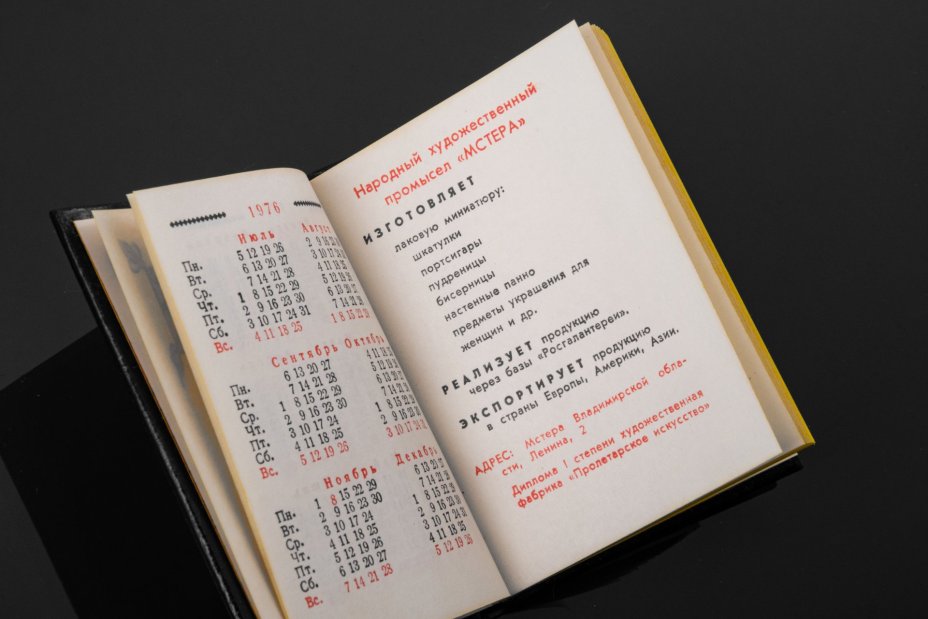 1976
Июль Август
Пн. 5 12 19 26 2 9 16
Вт. 6 13 20 27 3 10 17
Ср. 7 14 21 28 4 11 18
Чт. 1 8 15 22 29 5 12 19
Пт. 2 9 16 23 30 6 13 20
Сб. 3 10 17 24 31 7 14 21
Вс. 4 11 18 25 1 8 15 22
Сентябрь Октябрь
Пн. 6 13 20 27 4 11 18
Вт. 7 14 21 28 5 12 19
Ср. 1 8 15 22 29 6 13 20
Чт. 2 9 16 23 30 7 14 21
Пт. 3 10 17 24 1 8 15
Сб. 4 11 18 25 2 9 16 23
Вс. 5 12 19 26 3 10 17
Ноябрь Декабрь
Пн. 1 8 15 22 29 6 13 20
Вт. 2 9 16 23 30 7 14 21
Ср. 3 10 17 24 1 8 15 22
Чт. 4 11 18 25 2 9 16 23
Пт. 5 12 19 26 3 10 17 24
Сб. 6 13 20 27 4 11 18 25
Вс. 7 14 21 28 5 12 19 26
Народный художественный
промысел «МСТЕРА»
ИЗГОТОВЛЯЕТ
лаковую миниатюру:
шкатулки
портсигары
пудреницы
бисерницы
настенные панно
предметы украшения для
женщин и др.
РЕАЛИЗУЕТ продукцию
через базы «Росгалантереи».
ЭКСПОРТИРУЕТ продукцию
в страны Европы, Америки, Азии.
АДРЕС: Мстера Владимирской обла-
сти, Ленина, 2
Диплома I степени художественная
фабрика «Пролетарское искусство»